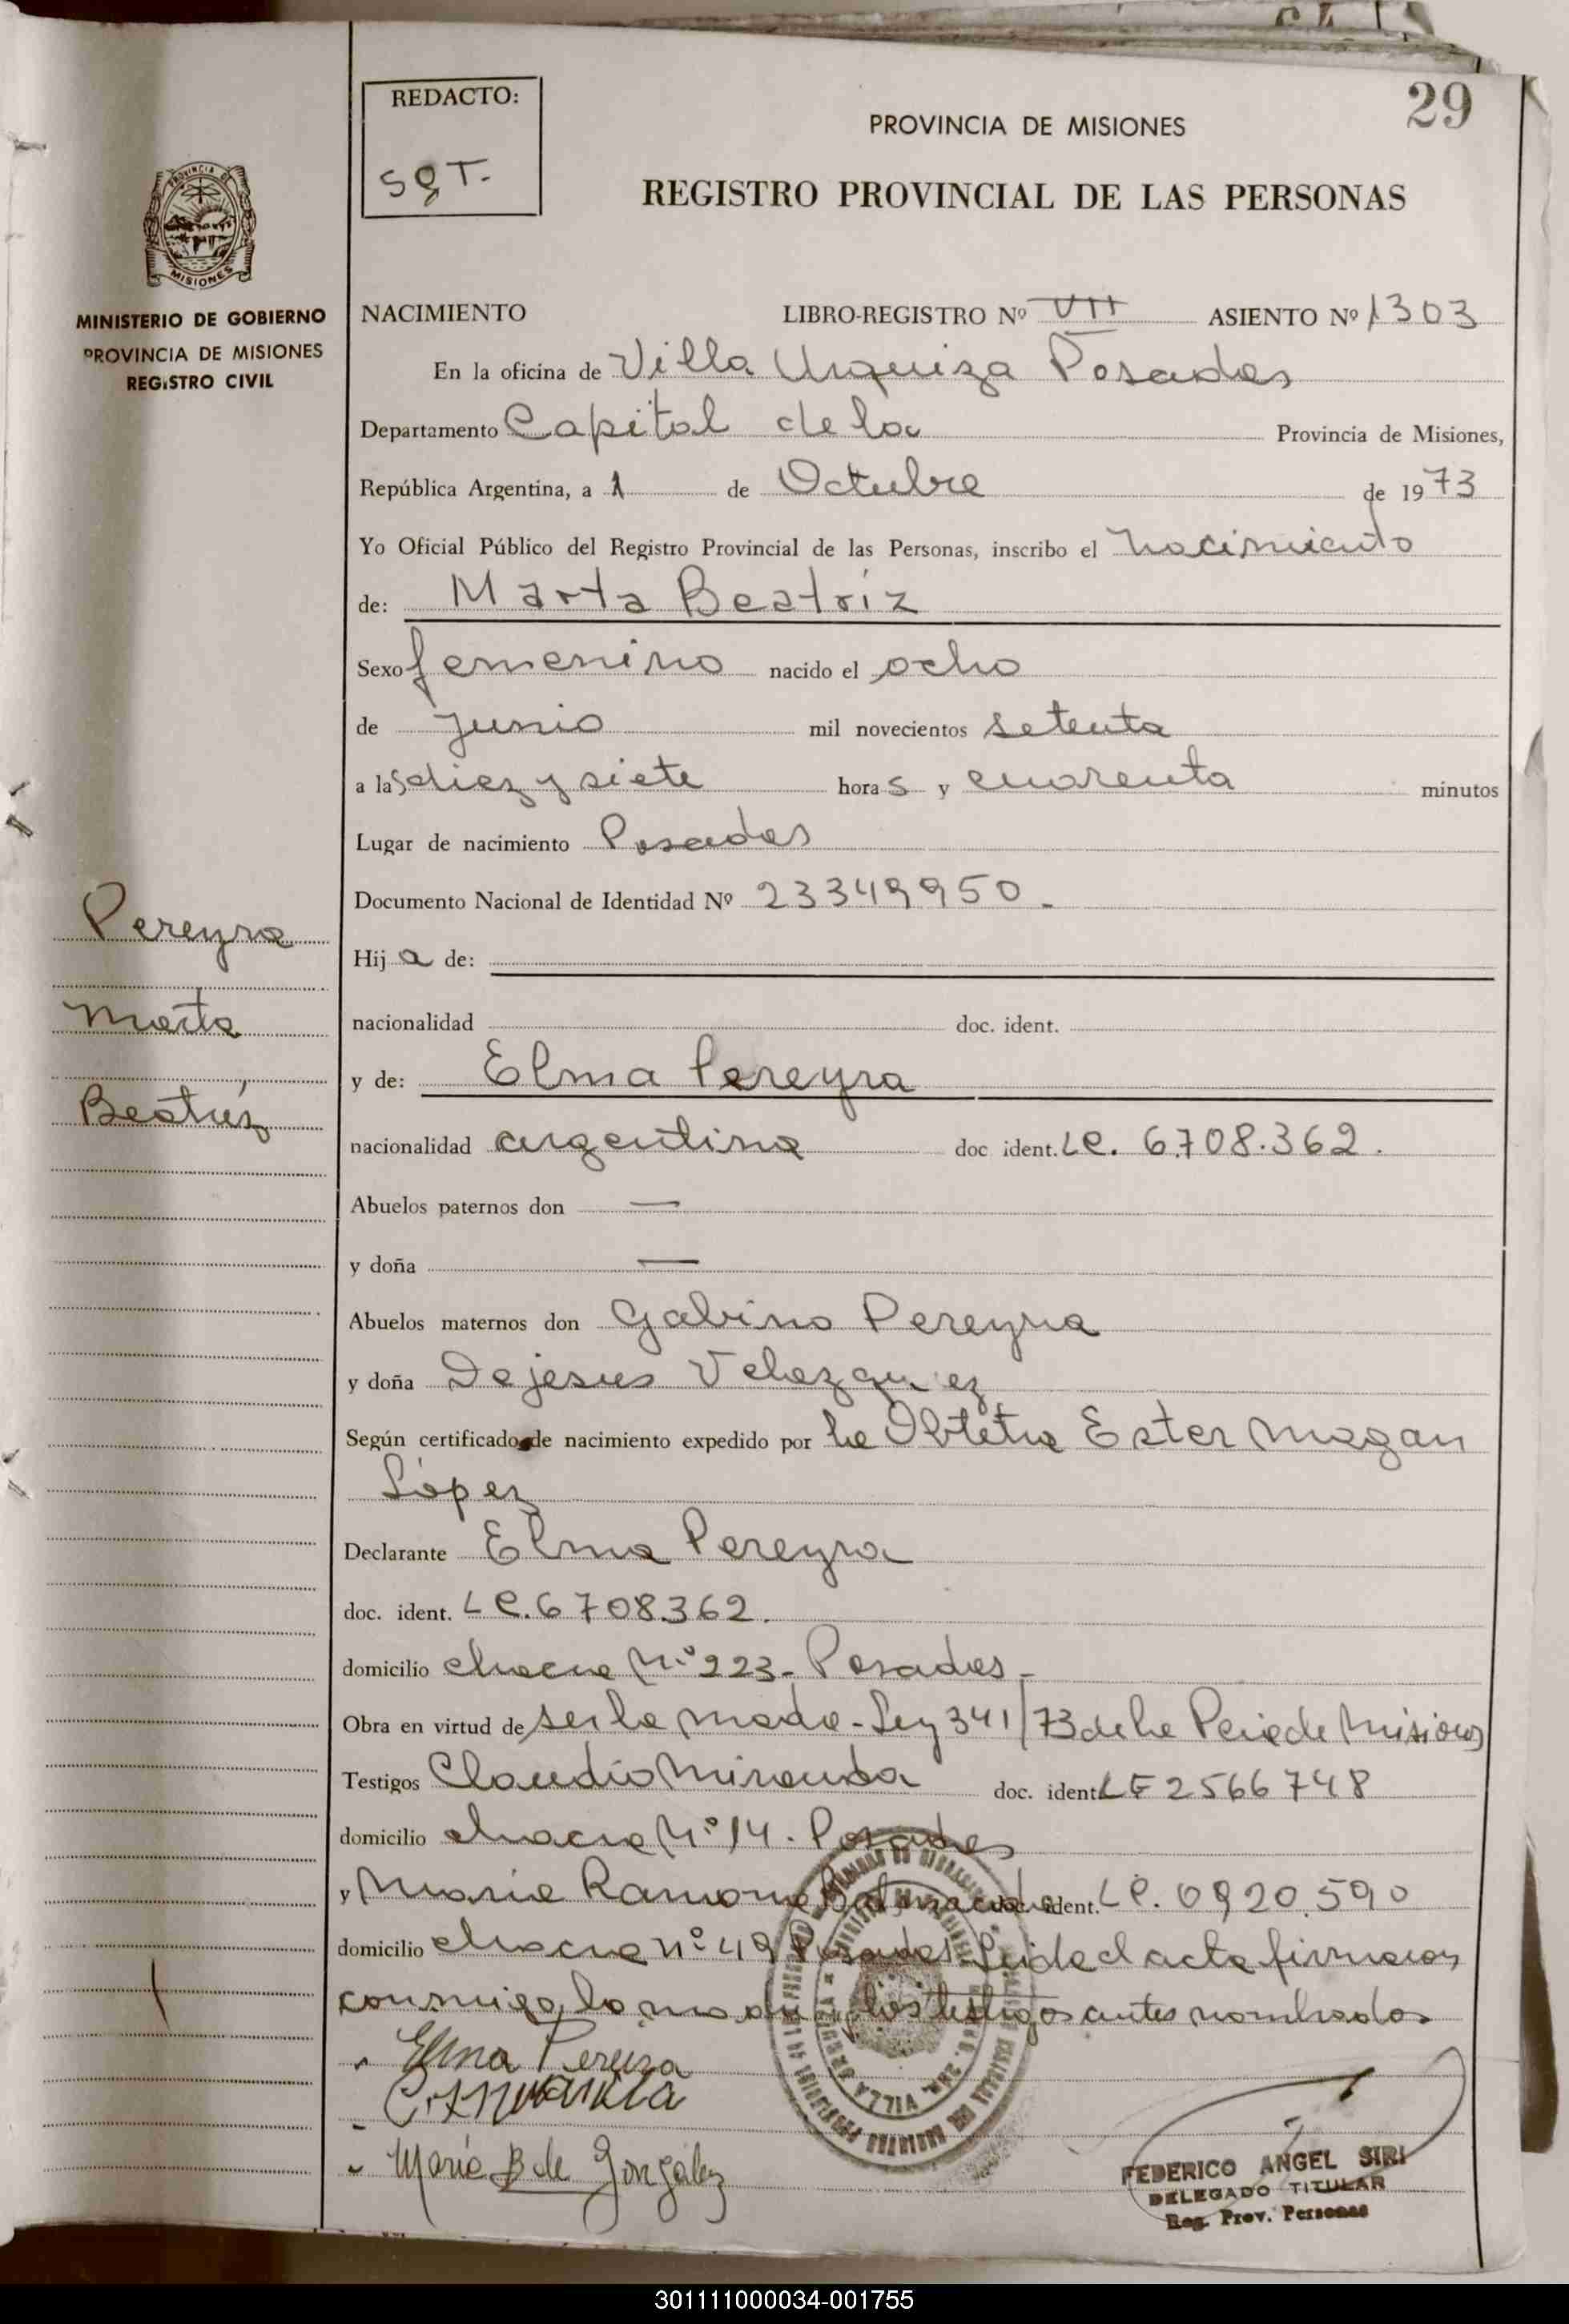 29
REDACTO:
SGT.
PROVINCIA DE MISIONES
REGISTRO PROVINCIAL DE LAS PERSONAS
PROVINCIA DE
MISIONES
MINISTERIO DE GOBIERNO
PROVINCIA DE MISIONES
REGISTRO CIVIL
NACIMIENTO LIBRO-REGISTRO Nº VII ASIENTO Nº 1303
En la oficina de Villa Urquiza Posadas
Departamento Capital de la Provincia de Misiones,
República Argentina, a 1 de Octubre de 1973
Yo Oficial Público del Registro Provincial de las Personas, inscribo el nacimiento
de: Marta Beatríz
Sexo femenino nacido el ocho
de junio mil novecientos setenta
a las diez y siete horas y cuarenta minutos
Lugar de nacimiento Posadas
Documento Nacional de Identidad Nº 23349950-
Pereyra
Marta
Beatríz
Hija de:
nacionalidad doc. ident.
y de: Elma Pereyra
nacionalidad argentina doc ident. LC. 6.708.362.
Abuelos paternos don —
y doña —
Abuelos maternos don Gabino Pereyra
y doña Dejesus Velazquez
Según certificado de nacimiento expedido por la Obtetra Ester Magan
López
Declarante Elma Pereyra
doc. ident. LC. 6708362.
domicilio chacra Nº 223- Posadas-
Obra en virtud de ser la madre-Ley 341/73 de la Pcia de Misiones
Testigos Claudio Miranda doc. ident. LE 2566748
domicilio chacra Nº 14. Posadas
y María Ramona doc. ident. LC. 0920.590
domicilio chacra nº 49 Posadas Leida el acta firmaron
conmigo la madre y los testigos antes nombrados
Elma Pereira
C. Miranda
María B de González
FEDERICO ANGEL SIRI
DELEGADO TITULAR
Reg. Prov. Personas
301111000034-001755